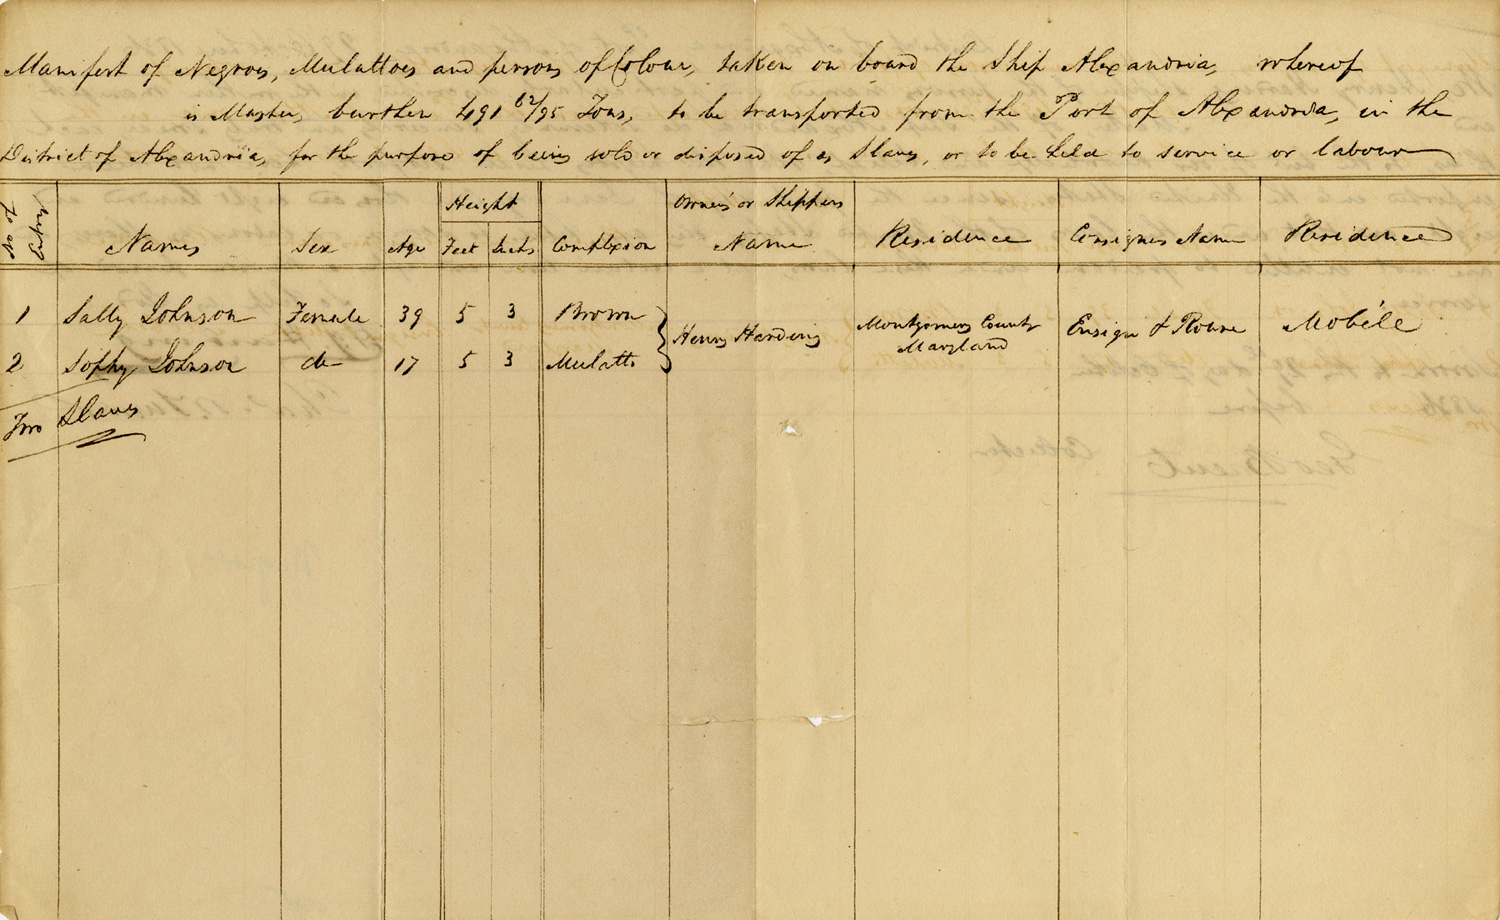 Manifest of Negroes, Mulattoes and persons of Colour, taken on board the Ship Alexandria, whereof
is Master, burthen 491 62/95 Tons, to be transported from the Port of Alexandria, in the
District of Alexandria, for the purpose of being sold or disposed of as Slaves, or to be held to service or labour
Height
Owners or Shippers
Names Sex Age Feet Inchs Complexion Name Residence Consignes Name Residence
1 Sally Johnson Female 39 5 3 Brown
Henry Harding Montgomery County Ensign & Mobile
Maryland
2 Sophy Johnson do 17 5 3 Mulatto
Two Slaves